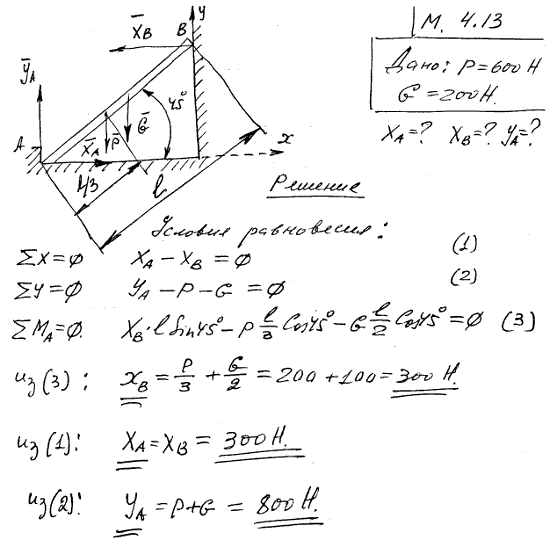 М. 4.13
Дано: P=600 Н
G=200Н.
X_A=? X_B=? Y_A=?
y
X̄_B
B
Ȳ_A
45°
Ḡ
P̄
X̄_A
A
x
l/3
l
Решение
Условия равновесия:
ΣX=0 X_A-X_B=0 (1)
ΣY=0 Y_A-P-G=0 (2)
ΣM_A=0. X_B·l Sin45°-P l/3 Cos45°-G l/2 Cos45°=0 (3)
из(3): X_B=P/3+G/2=200+100=300 Н.
из(1): X_A=X_B=300Н.
из(2): Y_A=P+G=800Н.